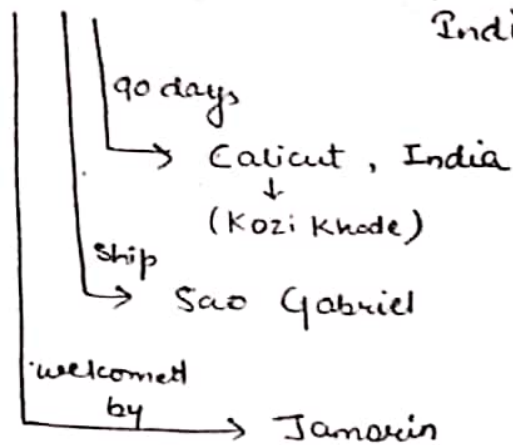 Indi
90 days
Calicut , India
(Kozi Khode)
Ship
Sao Gabriel
welcomed
by
Jamorin